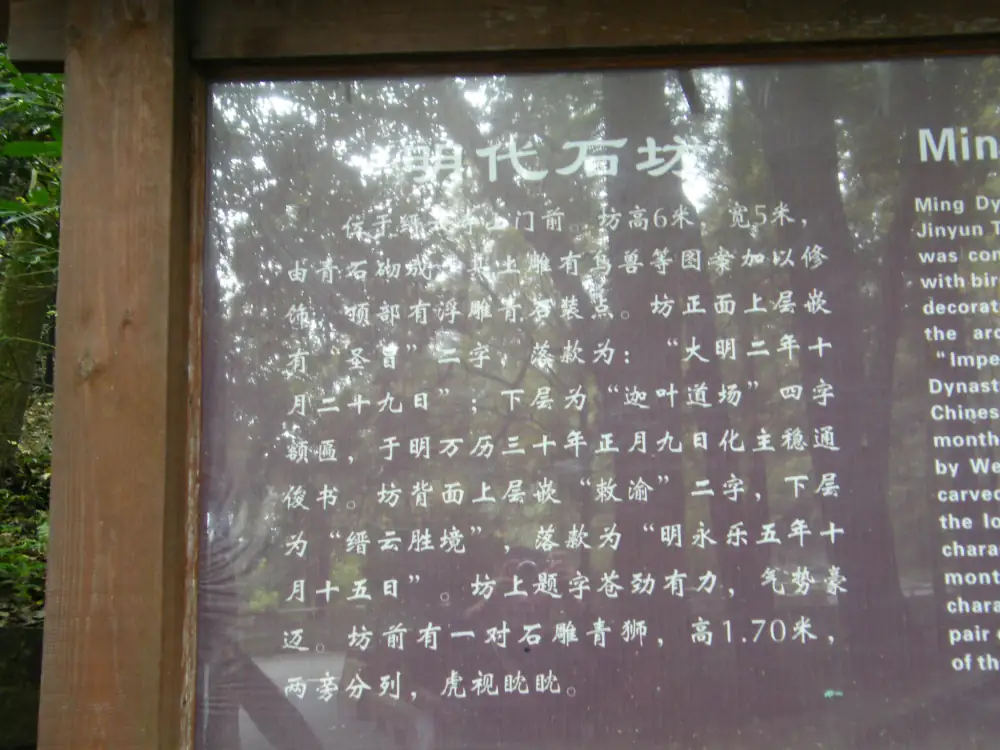 明代石坊
位于缙云寺山门前。坊高6米，宽5米，
由青石砌成，其上雕有鸟兽等图案加以修
饰，顶部有浮雕青石装点。坊正面上层嵌
有“圣旨”二字，落款为：“大明二年十
月二十九日”；下层为“迦叶道场”四字
额匾，于明万历三十年正月九日化主稳通
俊书。坊背面上层嵌“敕渝”二字，下层
为“缙云胜境”，落款为“明永乐五年十
月十五日”。坊上题字苍劲有力，气势豪
迈。坊前有一对石雕青狮，高1.70米，
两旁分列，虎视眈眈。
Min
Ming Dy
Jinyun T
was con
with bir
decorat
the arc
“Impe
Dynast
Chines
month
by We
carved
the lo
chara
mont
chara
pair
of th